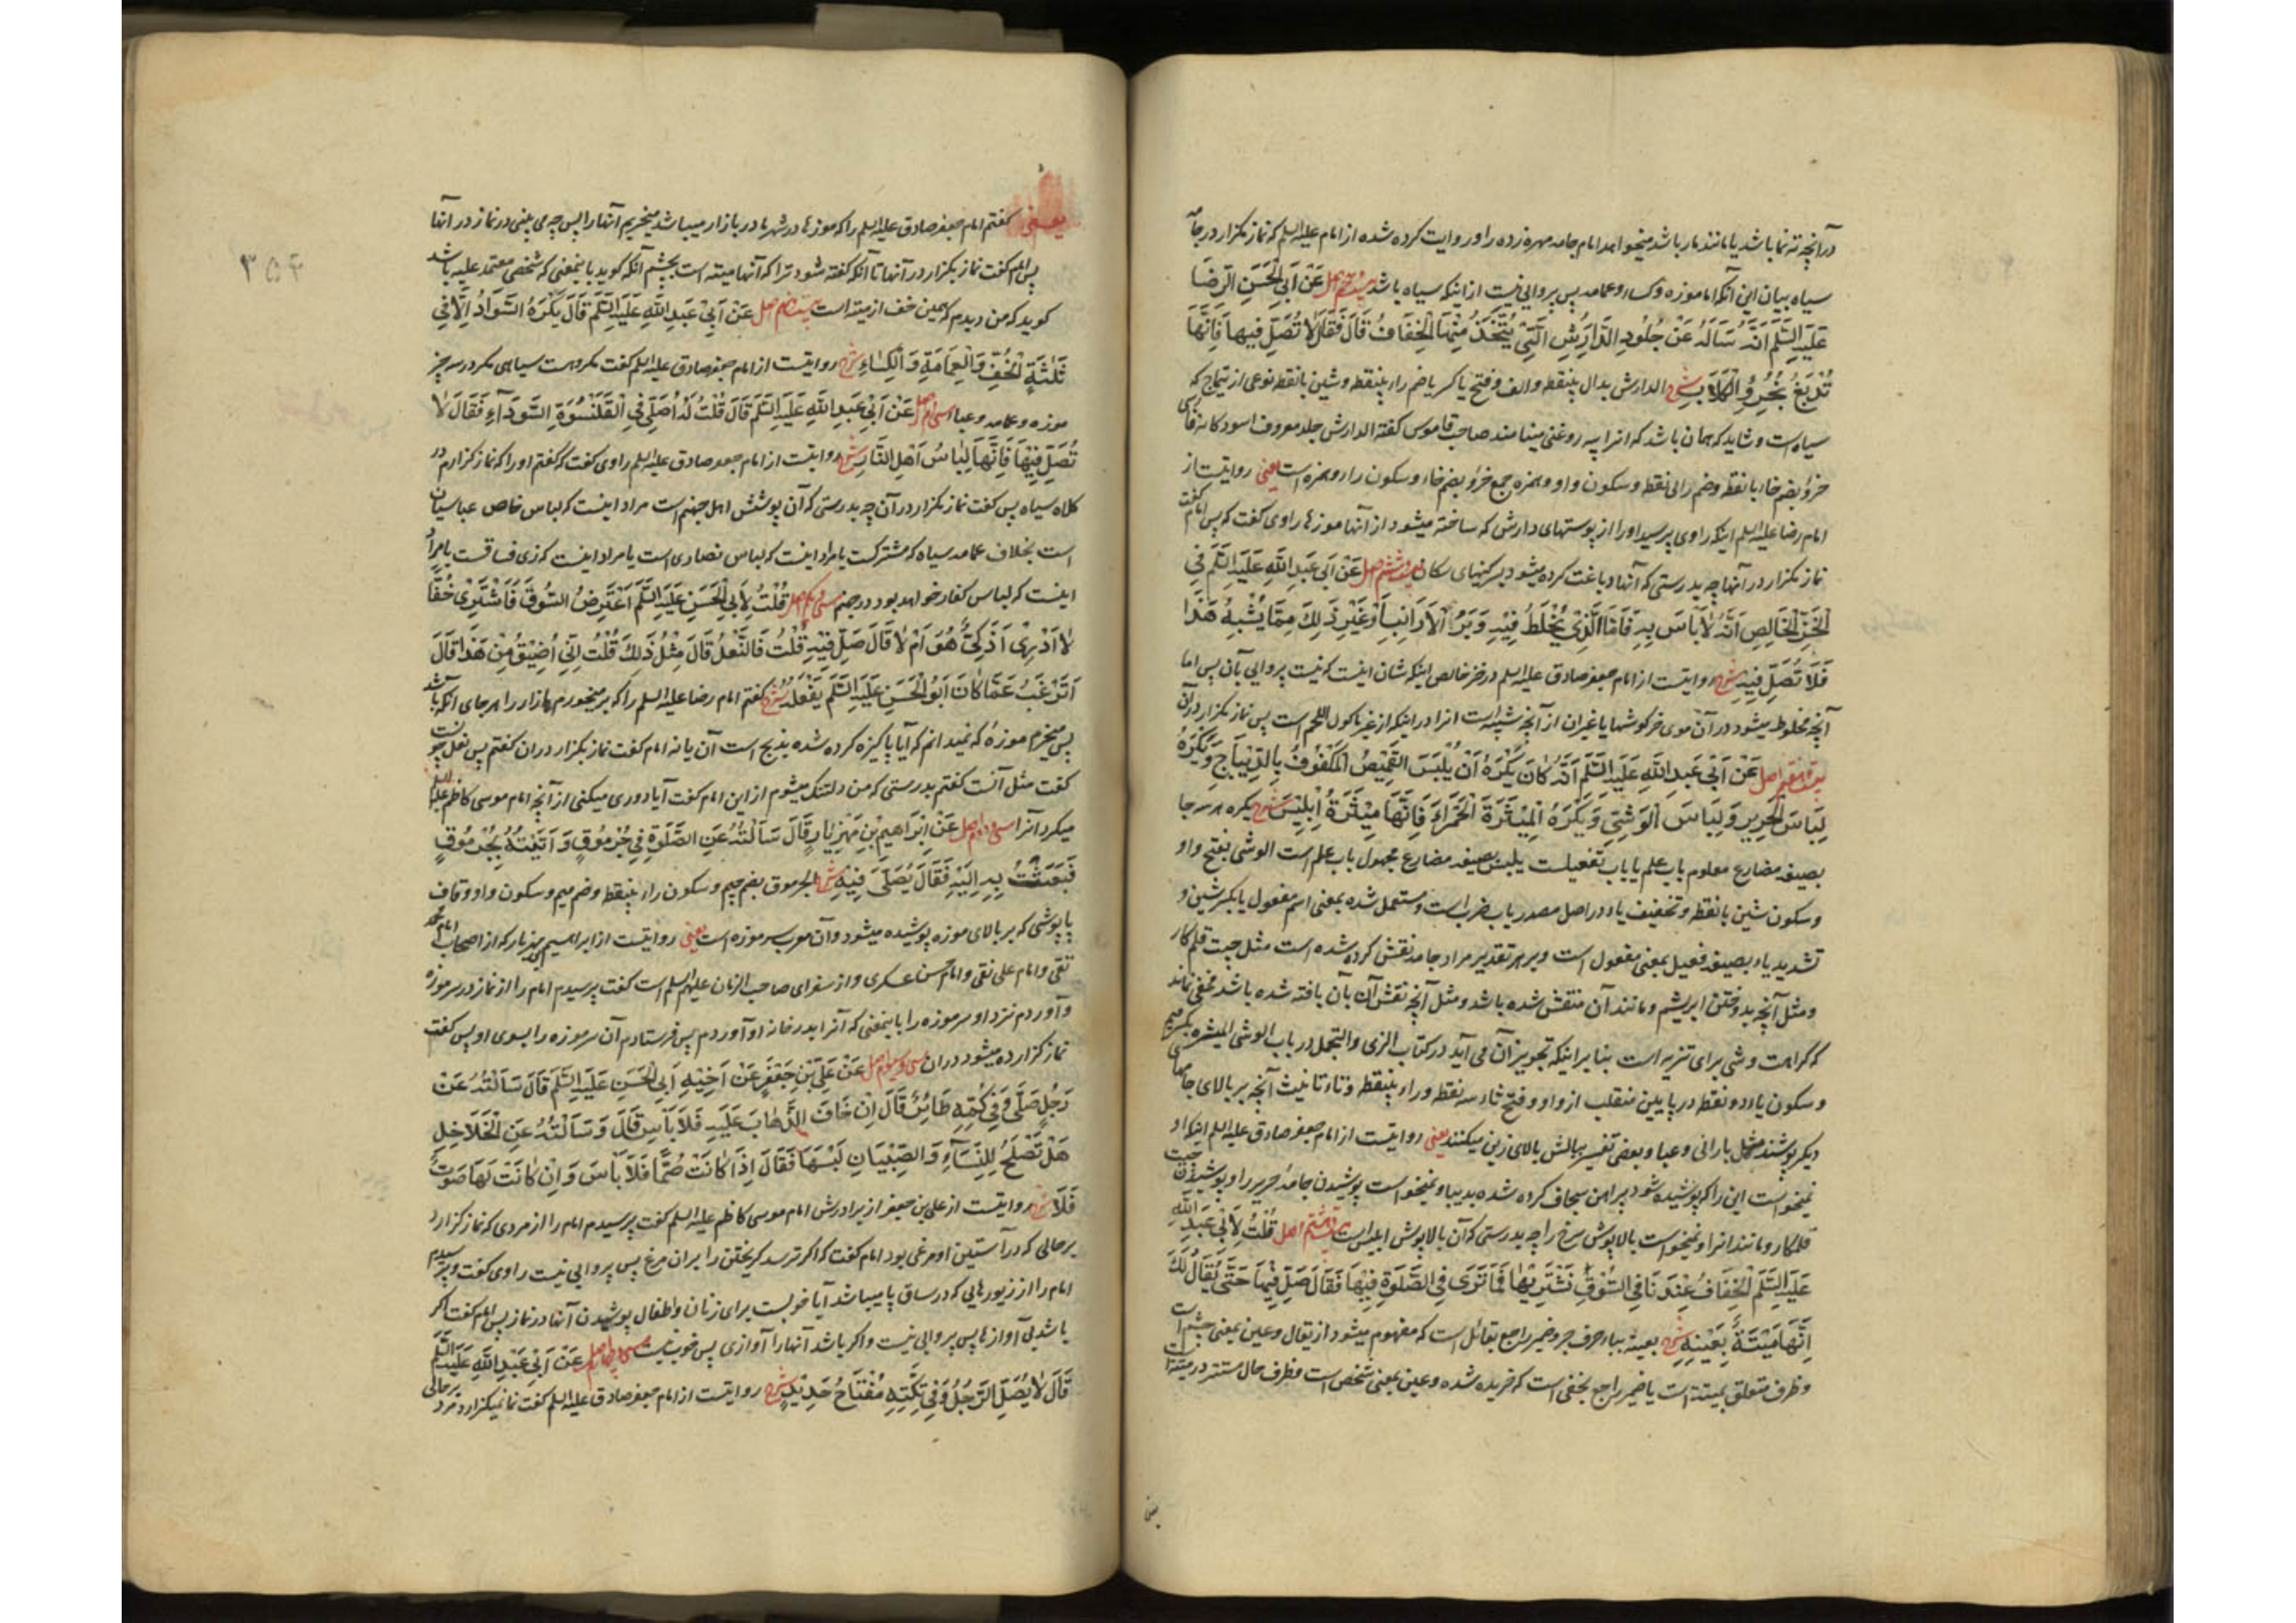 درآنچه ته نما باشد یا مانند مار باشد میخواهد امام جامه مهره زده را و روایت کرده شده از امام علیه السلم که نماز مکزار در جامه
سیاه بیان این آنکه اما موزه و کساء و عمامه پس پروایی نیست از اینکه سیاه باشد اصل عَنْ اَبِی الْحَسَنِ الرِّضَا
عَلَیْهِ السَّلَم اَنَّهُ سَاَلَهُ عَنْ جُلُودِ الدَّارِشِ الَّتِیْ یُتَّخَذُ مِنْهَا الْخِفَافُ قَالَ فَقَالَ لَا تُصَلِّ فِیهَا فَاِنَّهَا
تُدْبَغُ بِخُرْءِ الْکِلَابِ شرح الدارش بدال بینقطه و الف و فتح یا کسر یا ضم راء بینقطه و شین بانقطه نوعی از تیماج که
سیاه است و شاید که همان باشد که انرا پیه روغنی مینامند صاحب قاموس کفته الدارش جلد معروف اسود کانه فارسی
خرؤ بضم خاء بانقطه و ضم رای نقطه و سکون واو و همزه جمع خرؤ بضم خاء و سکون راء و همزه است یعنی روایتست از
امام رضا علیه السلم اینکه راوی پرسید اورا از پوستهای دارش که ساخته میشود از آنها موزه ها راوی کفت که پس امام کفت
نماز مکزار در آنها چه بدرستی که آنها دباغت کرده میشود بسرکینهای سکان بیست و ششم اصل عَنْ اَبِی عَبْدِ اللّٰهِ عَلَیْهِ السَّلَم فِی
الْخَزِّ الْخَالِصِ اَنَّهُ لَا بَاْسَ بِهِ فَاَمَّا الَّذِیْ یُخْلَطُ فِیْهِ وَبَرُ الْاَرَانِبِ اَوْ غَیْرِ ذٰلِکَ مِمَّا یُشْبِهُ هٰذَا
فَلَا تُصَلِّ فِیْهِ شرح روایتست از امام جعفر صادق علیه السلم در خز خالص اینکه شان اینست که نیست پروایی بآن پس اما
آنچه مخلوط میشود در آن موی خرکوشها یا غیر ان از آنچه شبیه است انرا در اینکه از غیر ماکول اللحم است پس نماز مکزار در آن
بیست و هفتم اصل عَنْ اَبِیْ عَبْدِ اللّٰهِ عَلَیْهِ السَّلَم اَنَّهُ کَانَ یَکْرَهُ اَنْ یُلْبَسَ الْقَمِیْصُ الْمَکْفُوفُ بِالدِّیْبَاجِ وَیَکْرَهُ
لِبَاسَ الْحَرِیرِ وَلِبَاسَ الْوَشِیِّ وَیَکْرَهُ الْمِیْثَرَةَ الْحَمْرَاءَ فَاِنَّهَا مِیْثَرَةُ اِبْلِیْسَ شرح یکره هر سه جا
بصیغه مضارع معلوم باب علم یا باب تفعیلست یلبس بصیغه مضارع مجهول باب علم است الوشی بفتح واو
و سکون شین بانقطه و تخفیف یاء در اصل مصدر باب ضرب است و مستعمل شده بمعنی اسم مفعول یا بکسر شین و
تشدید یاء بصیغه فعیل بمعنی مفعول است و بر هر تقدیر مراد جامه نقش کرده شده است مثل چیت قلم کار
و مثل آنچه بدوختن ابریشم و مانند آن منقش شده باشد و مثل آنچه نقش آن بآن بافته شده باشد مخفی نماند
که کراهت وشی برای تنزیه است بنا بر اینکه تجویز آن می آید در کتاب الزی و التجمل در باب الوشی المیثره بکسر میم
و سکون یاء دو نقطه در پایین منقلب از واو و فتح ثاء سه نقطه و راء بینقطه و تاء تانیث آنچه بر بالای جامها
دیکر پوشند مثل بارانی و عبا و بعضی تفسیر ببالش بالای زین میکنند یعنی روایتست از امام جعفر صادق علیه السلم اینکه او
نمیخواست این را که پوشیده شود پیراهن سجاف کرده شده بدیبا و نمیخواست پوشیدن جامۀ حریر را و پوشیدن چیت
قلمکار و مانند انرا و نمیخواست بالاپوش سرخ را چه بدرستی که آن بالاپوش ابلیس است بیست و هشتم اصل قُلْتُ لِاَبِیْ عَبْدِ اللّٰهِ
عَلَیْهِ السَّلَم الْخِفَافُ عِنْدَنَا فِی السُّوْقِ نَشْتَرِیْهَا فَمَا تَرَی فِی الصَّلٰوةِ فِیْهَا فَقَالَ صَلِّ فِیْهَا حَتّٰی یُقَالَ لَکَ
اِنَّهَا مَیْتَةٌ بِعَیْنِهِ شرح بعینه بباء حرف جر و ضمیر راجع بقائل است که مفهوم میشود از یقال و عین بمعنی چشم است
و ظرف متعلق بمیتة است یا ضمیر راجع بخفی است که خریده شده و عین بمعنی شخص است و ظرف حال مستتر در میتة است
یعنی
یعنی کفتم امام جعفر صادق علیه السلم را که موزه ها در شهر ما در بازار میباشد میخریم آنها را پس چه می بینی در نماز در آنها
پس امام کفت نماز بکزار در آنها تا آنکه کفته شود ترا که آنها میته است بچشم آنکه کوید باینمعنی که شخصی معتمد علیه باشد
کوید که من دیدم که همین خف از میته است بیست و نهم اصل عَنْ اَبِیْ عَبْدِ اللّٰهِ عَلَیْهِ السَّلَم قَالَ یُکْرَهُ السَّوَادُ اِلَّا فِی
ثَلٰثَةٍ الْخُفِّ وَالْعِمَامَةِ وَالْکِسَاءِ شرح روایتست از امام جعفر صادق علیه السلم کفت مکروهست سیاهی مکر در سه چیز
موزه و عمامه و عبا سی ام اصل عَنْ اَبِیْ عَبْدِ اللّٰهِ عَلَیْهِ السَّلَم قَالَ قُلْتُ لَهُ اُصَلِّیْ فِی الْقَلَنْسُوَةِ السَّوْدَآءِ فَقَالَ لَا
تُصَلِّ فِیْهَا فَاِنَّهَا لِبَاسُ اَهْلِ النَّارِ شرح روایتست از امام جعفر صادق علیه السلم راوی کفت که کفتم اورا که نماز کزارم در
کلاه سیاه پس کفت نماز مکزار در آن چه بدرستی که آن پوشش اهل جهنم است مراد اینست که لباس خاص عباسیان
است بخلاف عمامه سیاه که مشترکست یا مراد اینست که لباس نصاری است یا مراد اینست که زی فساقست یا مراد
اینست که لباس کفار خواهد بود در جهنم سی و یکم اصل قُلْتُ لِاَبِی الْحَسَنِ عَلَیْهِ السَّلَم اَعْتَرِضُ السُّوْقَ فَاَشْتَرِیْ خُفًّا
لَا اَدْرِیْ اَذَکِیٌّ هُوَ اَمْ لَا قَالَ صَلِّ فِیْهِ قُلْتُ فَالنَّعْلُ قَالَ مِثْلُ ذٰلِکَ قُلْتُ اِنِّی اُضَیَّقُ مِنْ هٰذَا قَالَ
اَتَرْغَبُ عَمَّا کَانَ اَبُو الْحَسَنِ عَلَیْهِ السَّلَم یَفْعَلُهُ شرح کفتم امام رضا علیه السلم را که بر میخورم بازار را هر جای آنکه باشد
پس میخرم موزۀ که نمیدانم که آیا پاکیزه کرده شده بذبح است آن یا نه امام کفت نماز بکزار در ان کفتم پس نعل چونست
کفت مثل آنست کفتم بدرستی که من دلتنک میشوم از این امام کفت آیا دوری میکنی از آنچه امام موسی کاظم علیه السلم
میکرد آنرا سی و دوم اصل عَنْ اِبْرَاهِیمَ بْنِ مَهْزِیَارَ قَالَ سَاَلْتُهُ عَنِ الصَّلٰوةِ فِی جُرْمُوْقٍ وَاَتَیْتُهُ بِجُرْمُوْقٍ
فَبَعَثْتُ بِهِ اِلَیْهِ فَقَالَ یُصَلّٰی فِیْهِ شرح الجرموق بضم جیم و سکون راء بینقطه و ضم میم و سکون واو و قاف
پاپوشی که بر بالای موزه پوشیده میشود و آن معرب سرموزه است یعنی روایتست از ابراهیم بن مهزیار که از اصحاب امام محمد
تقی و امام علی نقی و امام حسن عسکری و از سفرای صاحب الزمان علیهم السلم است کفت پرسیدم امام را از نماز در سرموزه
و آوردم نزد او سرموزه را باینمعنی که آنرا بدر خانه او آوردم پس فرستادم آن سرموزه را بسوی او پس کفت
نماز کزارده میشود در ان سی و سیوم اصل عَنْ عَلِیِّ بْنِ جَعْفَرٍ عَنْ اَخِیْهِ اَبِی الْحَسَنِ عَلَیْهِ السَّلَم قَالَ سَاَلْتُهُ عَنْ
رَجُلٍ صَلّٰی وَفِیْ کُمِّهِ طَائِرٌ قَالَ اِنْ خَافَ الذَّهَابَ عَلَیْهِ فَلَا بَاْسَ قَالَ وَسَاَلْتُهُ عَنِ الْخَلَاخِلِ
هَلْ تَصْلُحُ لِلنِّسَآءِ وَالصِّبْیَانِ لُبْسُهَا فَقَالَ اِذَا کَانَتْ صُمًّا فَلَا بَاْسَ وَاِنْ کَانَتْ لَهَا صَوْتٌ
فَلَا شرح روایتست از علی بن جعفر از برادرش امام موسی کاظم علیه السلم کفت پرسیدم امام را از مردی که نماز کزارد
بر حالی که در آستین او مرغی بود امام کفت که اکر ترسد کریختن را بر ان مرغ پس پروایی نیست راوی کفت و پرسیدم
امام را از زیورهایی که در ساق پا میباشد آیا خوبست برای زنان و اطفال پوشیدن آنها در نماز پس امام کفت اکر
باشد بی آوازها پس پروایی نیست و اکر باشد آنها را آوازی پس خوب نیست سی و چهارم اصل عَنْ اَبِیْ عَبْدِ اللّٰهِ عَلَیْهِ السَّلَم
قَالَ لَا یُصَلِّ الرَّجُلُ وَفِیْ تِکَّتِهِ مِفْتَاحُ حَدِیْدٍ شرح روایتست از امام جعفر صادق علیه السلم کفت نماز نمیکزارد مرد بر حالی
۳۵۴